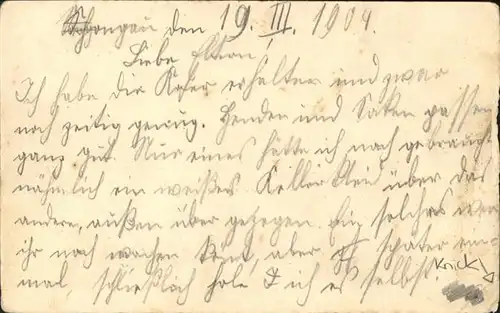 Schongau, den 19. III. 1904.
Liebe Eltern,
Ich habe die Koffer erhalten und zwar
noch zeitig genug. Hemden und Socken passen
ganz gut. Nur eines hätte ich noch gebraucht
nähmlich ein weißes Kleid über das
andere, außen über gezogen. Ein solches
ihr noch machen aber später ein
mal, schließlich hole ich es selbst.
Knick